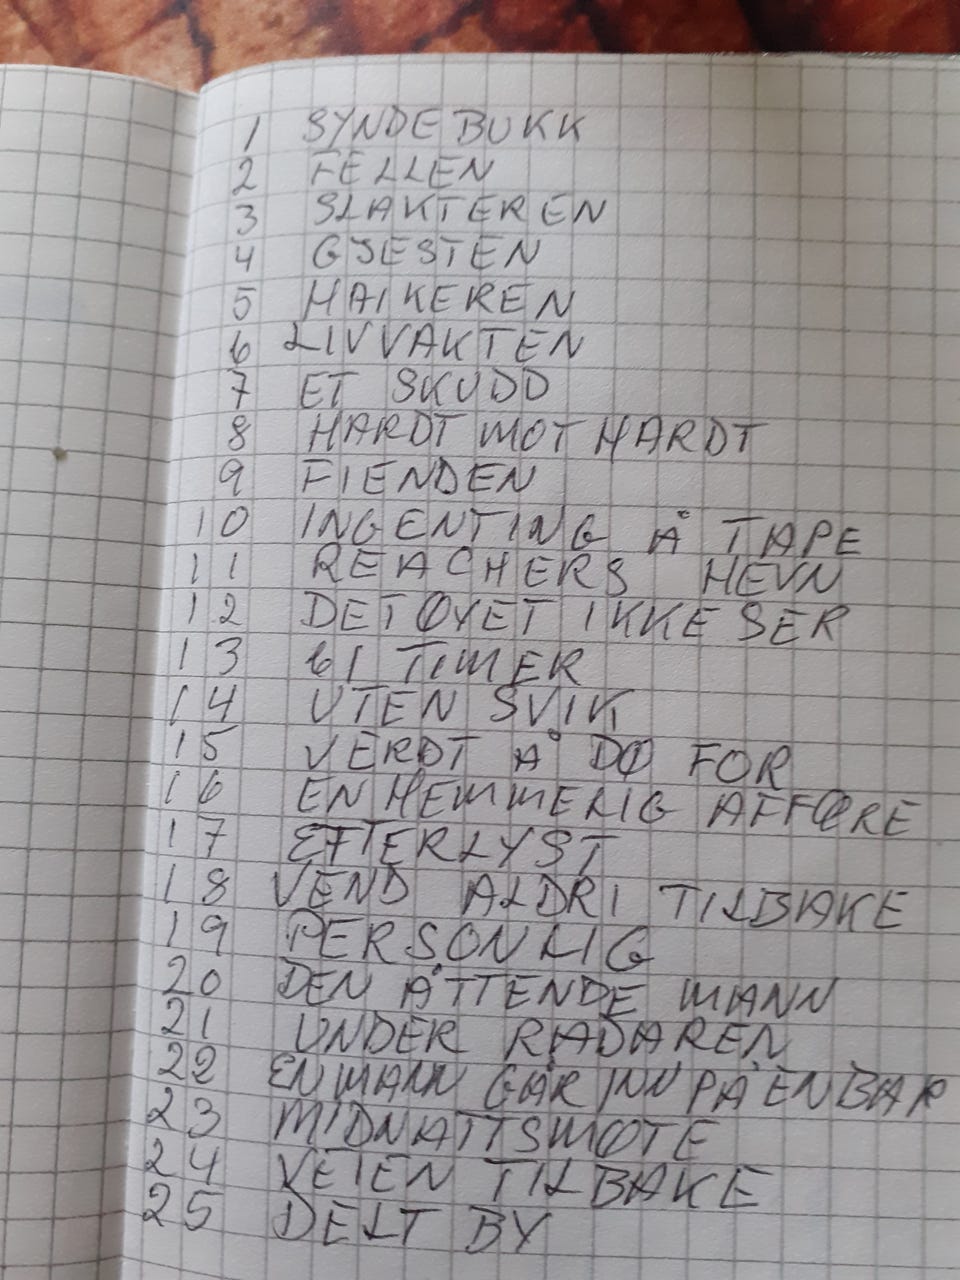 1 SYNDEBUKK
2 FELLEN
3 SLAKTEREN
4 GJESTEN
5 HAIKEREN
6 LIVVAKTEN
7 ET SKUDD
8 HARDT MOT HARDT
9 FIENDEN
10 INGENTING Å TAPE
11 REACHERS HEVN
12 DET ØYET IKKE SER
13 61 TIMER
14 UTEN SVIK
15 VERDT Å DØ FOR
16 EN HEMMELIG AFFÆRE
17 EFTERLYST
18 VEND ALDRI TILBAKE
19 PERSONLIG
20 DEN ÅTTENDE MANN
21 UNDER RADAREN
22 EN MANN GÅR INN PÅ EN BAR
23 MIDNATTSMØTE
24 VEIEN TILBAKE
25 DELT BY